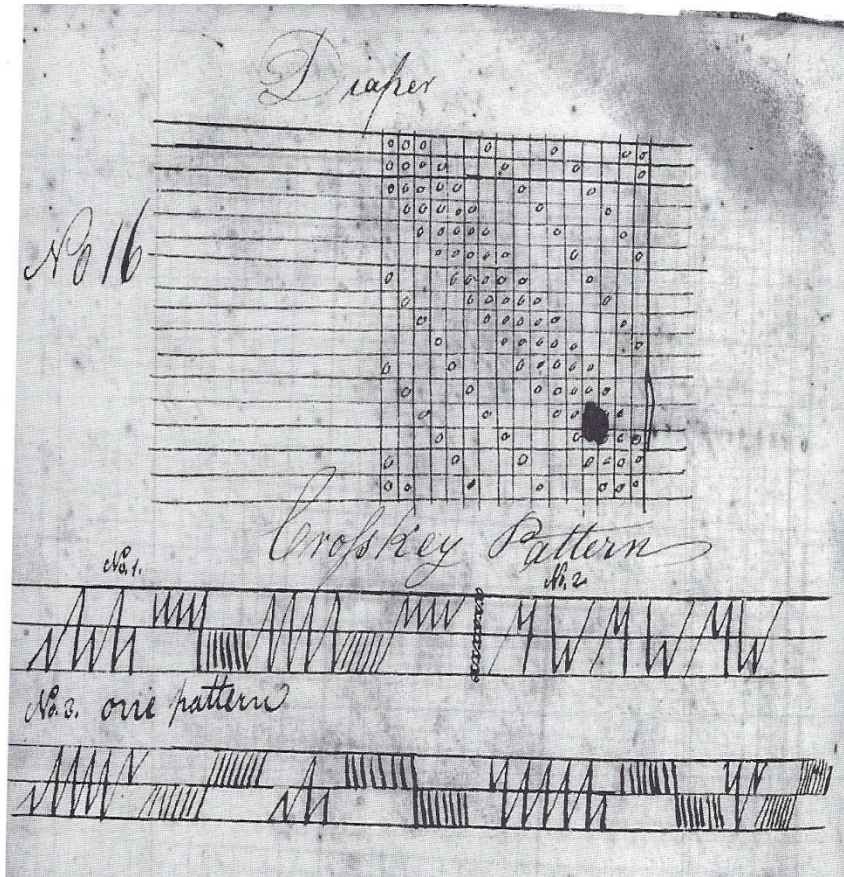 Diaper
No 16
Crosskey Pattern
No. 1.
No. 2
No. 3. one pattern